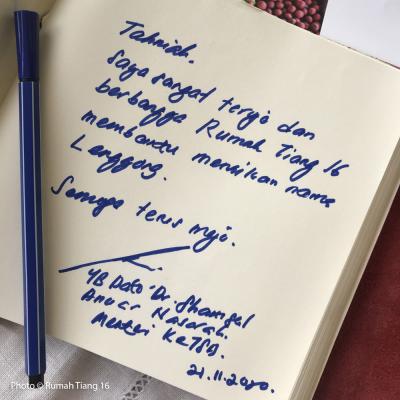 Tahniah.
Saya sangat teruja dan
berbangga Rumah Tiang 16
membantu menaikan nama
Lenggong.
Semoga terus maju.
YB Dato' Dr. Shamsul
Anuar Nasarah.
Menteri KeTSA.
21.11.2020.
Photo © Rumah Tiang 16